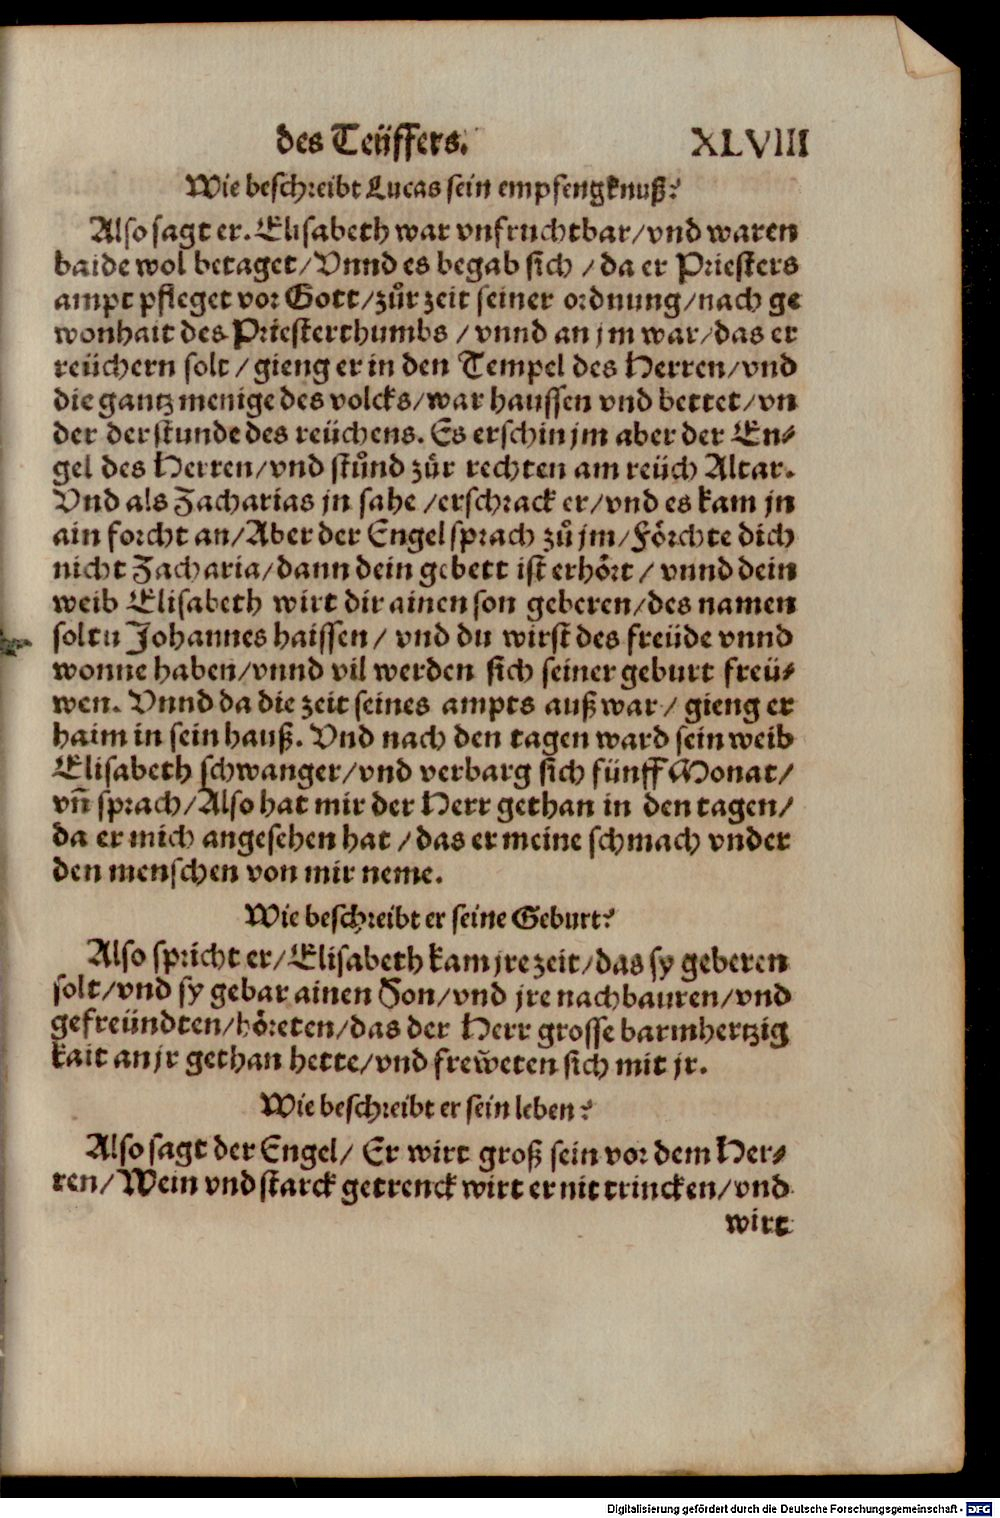 des Teüffers. XLVIII
Wie beschreibt Lucas sein empfengknuß?
Also sagt er. Elisabeth war vnfruchtbar/vnd waren
baide wol betaget/Vnnd es begab sich /da er Priesters
ampt pfleget vor Gott/zůr zeit seiner ordnung/nach ge
wonhait des Priesterthumbs /vnnd an jm war/das er
reüchern solt/gieng er in den Tempel des Herren/vnd
die gantz menige des volcks/war haussen vnd bettet/vn
der der stunde des reüchens. Es erschin jm aber der En⸗
gel des Herren/vnd stůnd zůr rechten am reüch Altar.
Vnd als Zacharias jn sahe /erschrack er/vnd es kam jn
ain forcht an/Aber der Engel sprach zů jm/Förchte dich
nicht Zacharia/dann dein gebett ist erhört/ vnnd dein
weib Elisabeth wirt dir ainen son geberen/des namen
soltu Johannes haissen/ vnd du wirst des freüde vnnd
wonne haben/vnnd vil werden sich seiner geburt freü⸗
wen. Vnnd da die zeit seines ampts auß war/ gieng er
haim in sein hauß. Vnd nach den tagen ward sein weib
Elisabeth schwanger/vnd verbarg sich fünff Monat/
vñ sprach/Also hat mir der Herr gethan in den tagen/
da er mich angesehen hat /das er meine schmach vnder
den menschen von mir neme.
Wie beschreibt er seine Geburt?
Also spricht er/Elisabeth kam jre zeit/das sy geberen
solt/vnd sy gebar ainen Son/vnd jre nachbauren/vnd
gefreündten/höreten/das der Herr grosse barmhertzig
kait an jr gethan hette/vnd freẅeten sich mit jr.
Wie beschreibt er sein leben?
Also sagt der Engel/ Er wirt groß sein vor dem Her⸗
ren/Wein vnd starck getrenck wirt er nit trincken/vnd
wirt
Digitalisierung gefördert durch die Deutsche Forschungsgemeinschaft - DFG